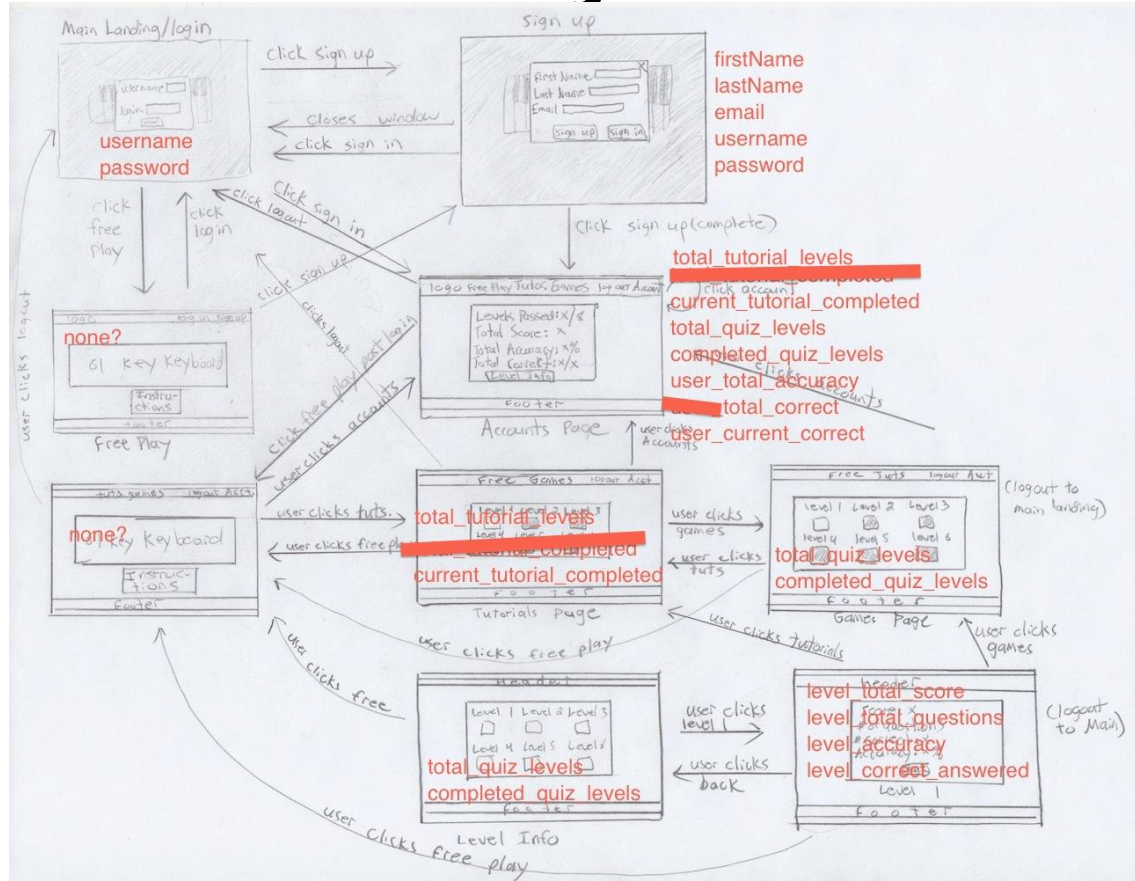 Main Landing/login
username
login
username
password
click sign up
closes window
click sign in
sign up
First Name
Last Name
Email
sign up sign in
firstName
lastName
email
username
password
click free play
click login
click sign in
click logout
click sign up
clicks logout
click sign up (complete)
user clicks logout
logo log in sign up
none?
61 Key Keyboard
Instructions
footer
Free Play
click free play post login
user clicks accounts
logo Free Play Tutos. Games log out Account
Levels Passed: x/8
Total Score: x
Total Accuracy: x%
Total Correct: x/x
Level Info
Footer
Accounts Page
click account
total_tutorial_levels
current_tutorial_completed
total_quiz_levels
completed_quiz_levels
user_total_accuracy
total_correct
user_current_correct
clicks accounts
user clicks Accounts
tuts games logout Acct
none?
61 Key Keyboard
Instructions
Footer
user clicks tuts.
user clicks free
Free Games logout Acct
total_tutorial_levels
current_tutorial_completed
Footer
Tutorials Page
user clicks games
user clicks tuts
Free Tuts logout Acct
level 1 Level 2 Level 3
level 4 level 5 level 6
total_quiz_levels
completed_quiz_levels
Footer
Games Page
(logout to main landing)
user clicks free play
user clicks tutorials
user clicks games
user clicks free
Header
Level 1 Level 2 Level 3
Level 4 Level 5 Level 6
total_quiz_levels
completed_quiz_levels
Footer
Level Info
user clicks level 1
user clicks back
Header
level_total_score
level_total_questions
level_accuracy
level_correct_answered
Level 1
Footer
(logout to Main)
user clicks free play